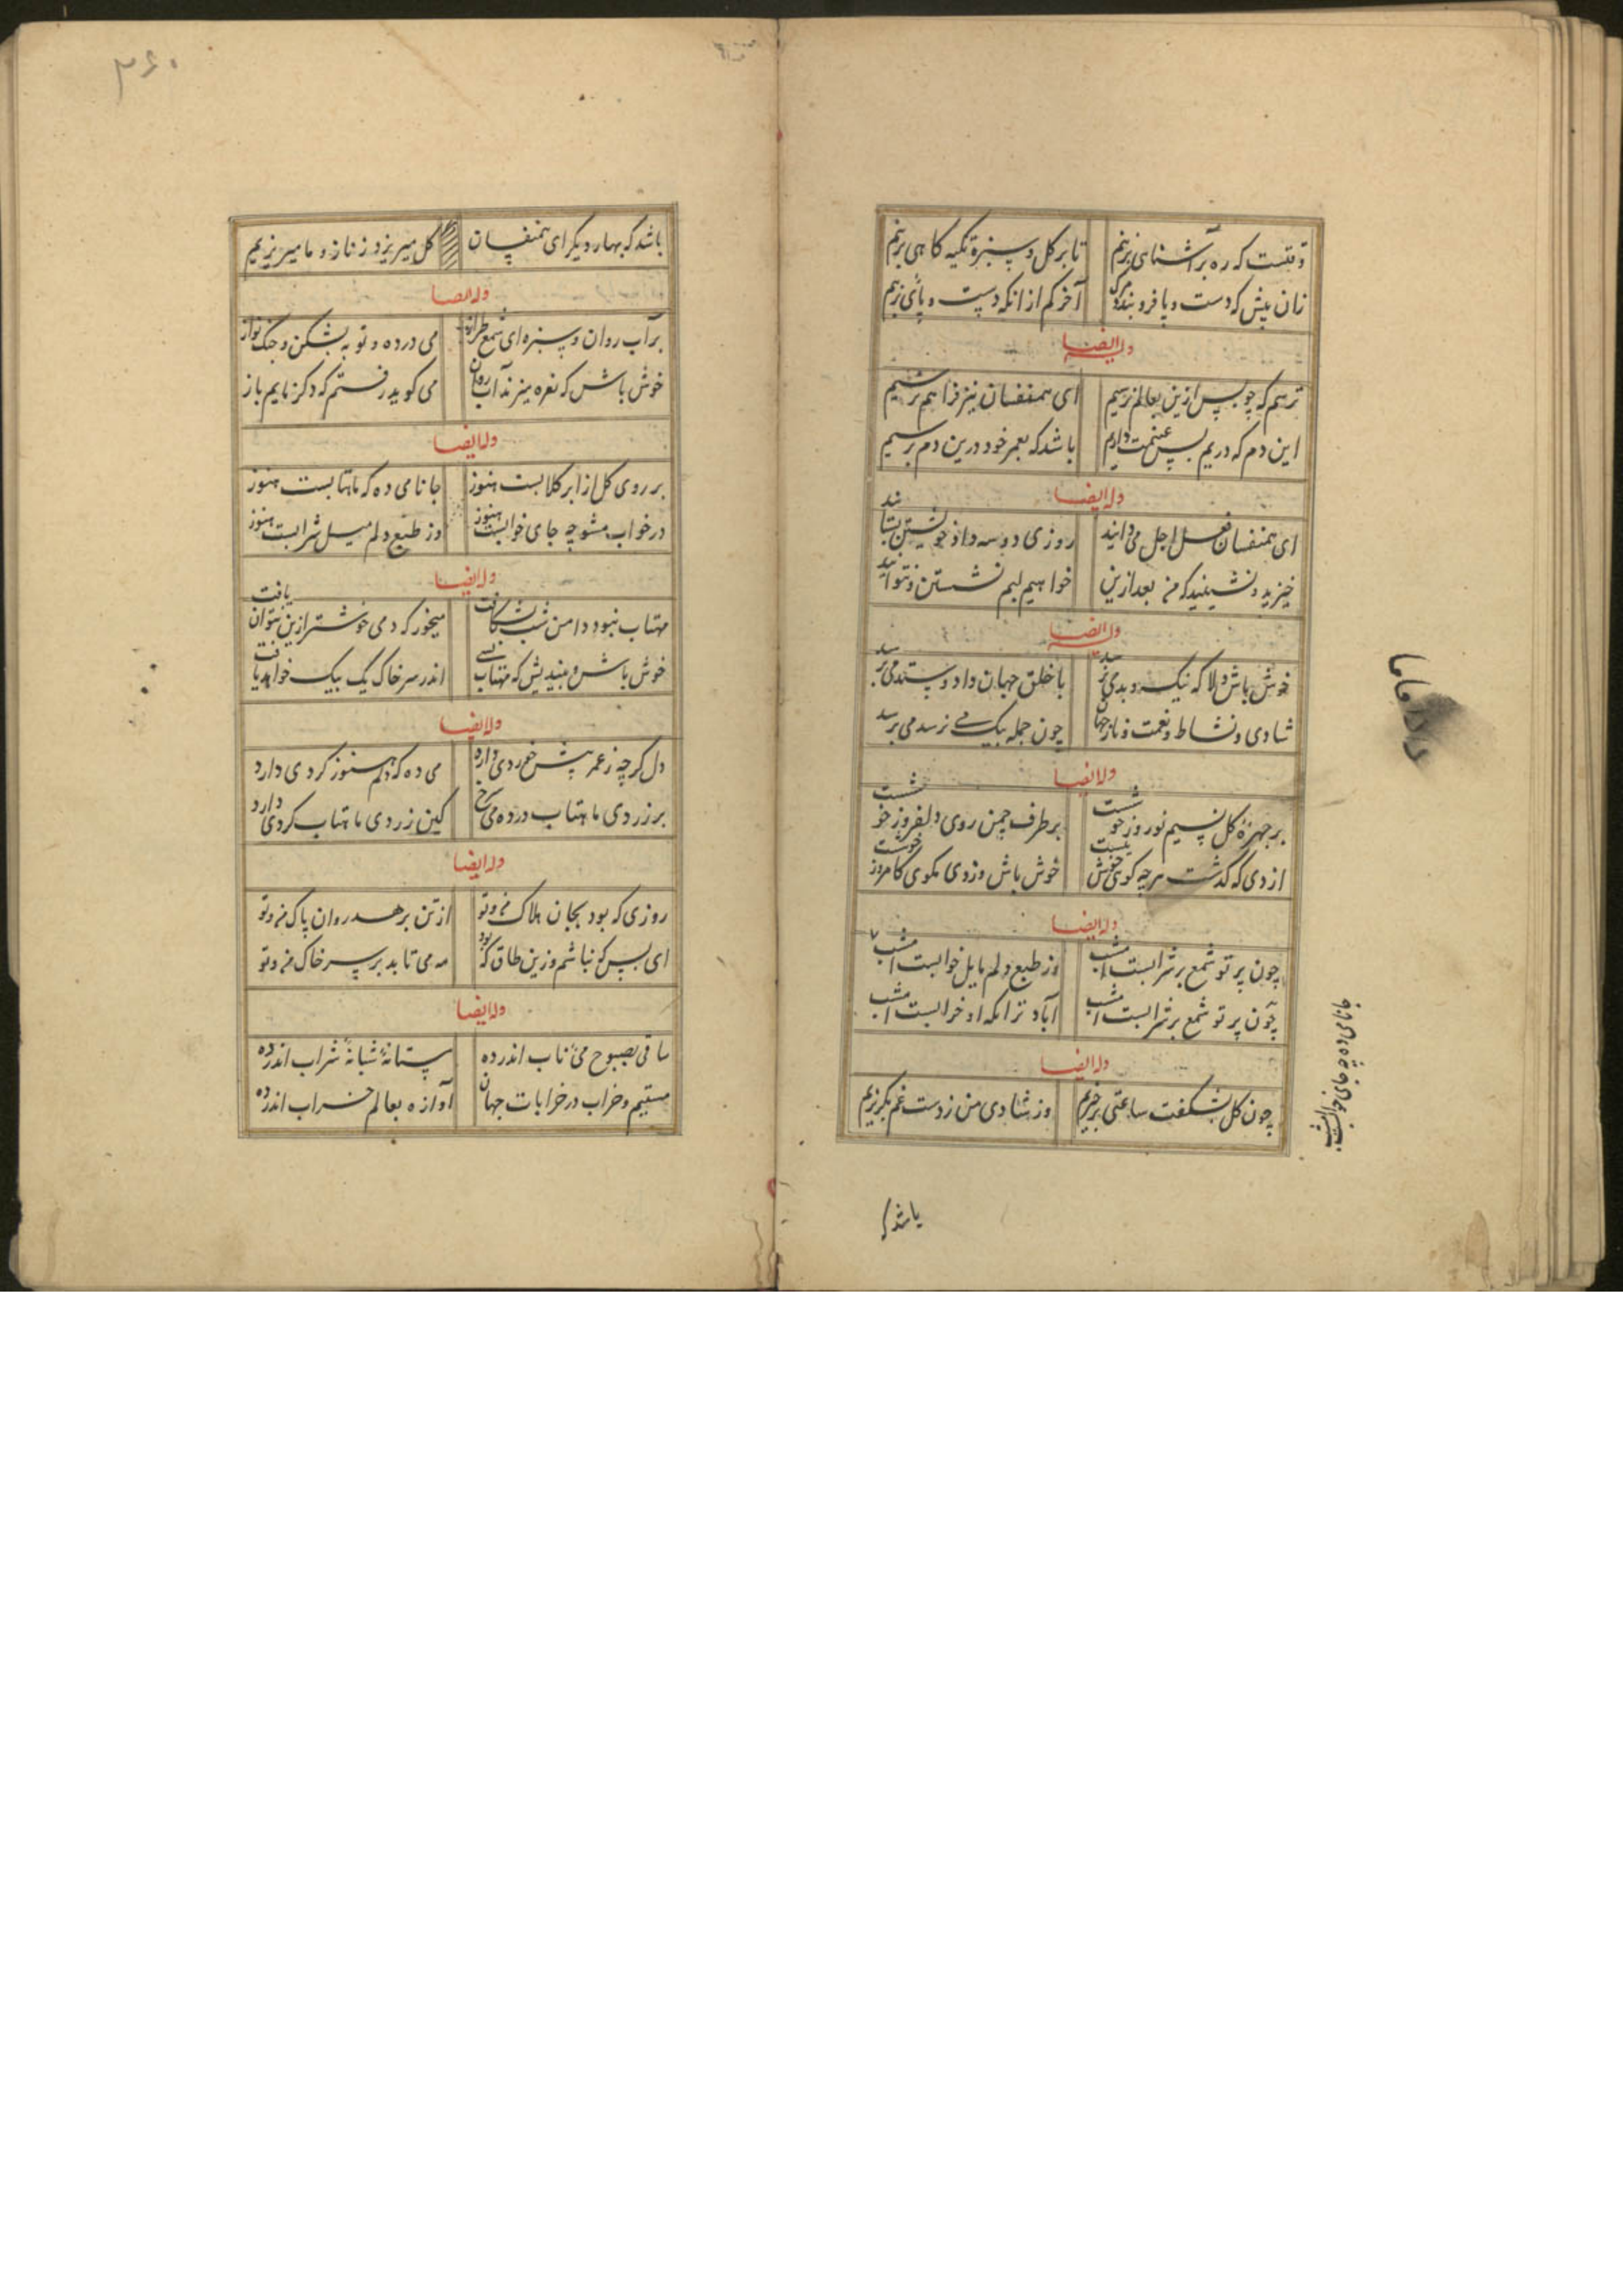 وقتست که ره بر آشنای بزنیم تا بر کل و سبزه تکیه کاهی بزنیم
زان پیش که دست و پا فرو بندد مرک آخر کم از انکه دست و پائی بزنیم
وله ایضا
ترسم که چو پس ازین بعالم نرسیم ای همنفسان نیز فراهم نرسیم
این دم که دریم بس غنیمت داریم باشد که بعمر خود درین دم برسیم
وله ایضا
ای همنفسان فعل اجل می دانید روزی دو سه داد خویشتن بستانید
خیزید و نشینید که من بعد ازین خواهیم بهم نشستن و نتوانید
وله ایضا
خوش باش دلا که نیک و بدی برسد با خلق جهان داد و ستد می برسد
شادی و نشاط و نعمت و ناز جهان چون جمله بیک می نرسد می برسد
وله ایضا
بر چهرهٔ کل نسیم نوروز خوشست بر طرف چمن روی دلفروز خوشست
از دی که کذشت هر چه کوی خوش نیست خوش باش وز دی مکوی کامروز خوشست
وله ایضا
چون پرتو شمع بر شرابست امشب وز طبع دلم مایل خوابست امشب
چون پرتو شمع بر شرابست امشب آباد ترانکه او خرابست امشب
جانا می ده چه جای خوابست امشب
وله ایضا
چون کل بشکفت ساعتی برخیزیم وز شادی می ز دست غم بکریزیم
باشد که
۳۶۰
باشد که بهار دیکر ای همنفسان کل میریزد ز نار و ما میریزیم
وله ایضا
بر آب روان و سبزه ای شمع طراز می در ده و توبه بشکن و چنک نواز
خوش باش که نعره میزند آب روان می کوید رفتم که دکر نایم باز
وله ایضا
بر روی کل از ابر کلابست هنوز جانا می ده که ماهتابست هنوز
در خواب مشو چه جای خوابست هنوز وز طبع دلم میل شرابست هنوز
وله ایضا
مهتاب بنور دامن شب بشکافت میخور که دمی خوشتر ازین نتوان یافت
خوش باش و میندیش که مهتاب بسی اندر سر خاک یک بیک خواهد یافت
وله ایضا
دل کرچه ز عمر پیش خوردی دارد می ده که دلم هنوز کردی دارد
بر زردی ماهتاب در ده می سرخ کین زردی ماهتاب کردی دارد
وله ایضا
روزی که بود بجان هلاک من و تو از تن برهد روان پاک من و تو
ای بس که نباشیم وزین طاق کبود مه می تابد بر سر خاک من و تو
وله ایضا
ساقی بصبوح می ناب اندر ده مستانهٔ شبانهٔ شراب اندر ده
مستیم و خراب در خرابات جهان آوازه بعالم خراب اندر ده